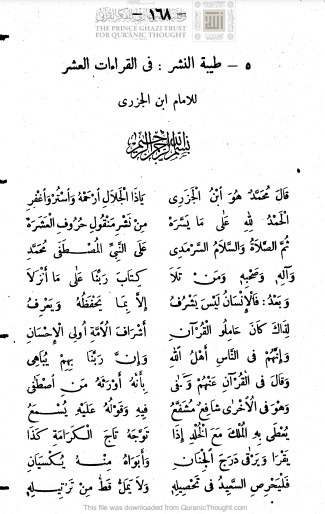 - ١٦٨ -
THE PRINCE GHAZI TRUST
FOR QUR'ANIC THOUGHT
٥ - طيبة النشر : فى القراءات العشر
للامام ابن الجزرى
بسم الله الرحمن الرحيم
قَالَ مُحَمَّدٌ هُوَ ابْنُ الْجَزَرِى يَاذَا الْجَلَالِ ارْحَمْهُ وَاسْتُرْ وَاغْفِرِ
الْحَمْدُ لِلّٰهِ عَلَى مَا يَسَّرَهُ مِنْ نَشْرِ مَنْقُولِ حُرُوفِ الْعَشَرَهْ
ثُمَّ الصَّلَاةُ وَالسَّلَامُ السَّرْمَدِى عَلَى النَّبِىِّ الْمُصْطَفَى مُحَمَّدِ
وَآلِهِ وَصَحْبِهِ وَمَنْ تَلَا كِتَابَ رَبِّنَا عَلَى مَا أَنْزَلَا
وَبَعْدُ : فَالْإِنْسَانُ لَيْسَ يَشْرُفُ إِلَّا بِمَا يَحْفَظُهُ وَيَعْرِفُ
لِذَاكَ كَانَ حَامِلُو الْقُرْآنِ أَشْرَافَ الْأُمَّةِ أُولِى الْإِحْسَانِ
وَإِنَّهُمْ فِى النَّاسِ أَهْلُ اللّٰهِ وَإِنَّ رَبَّنَا بِهِمْ يُبَاهِى
وَقَالَ فِى الْقُرْآنِ عَنْهُمْ وَكَفَى بِأَنَّهُ أَوْرَثَهُ مَنِ اصْطَفَى
وَهُوَ فِى الْأُخْرَى شَافِعٌ مُشَفَّعُ فِيهِ وَقَوْلُهُ عَلَيْهِ يُسْمَعُ
يُعْطَى بِهِ الْمُلْكَ مَعَ الْخُلْدِ إِذَا تَوَّجَهُ تَاجَ الْكَرَامَةِ كَذَا
يَقْرَا وَيَرْقَى دَرَجَ الْجِنَانِ وَأَبَوَاهُ مِنْهُ يُكْسَيَانِ
فَلْيَحْرِصِ السَّعِيدُ فِى تَحْصِيلِهِ وَلَا يَمَلَّ قَطُّ مِنْ تَرْتِيلِهِ
This file was downloaded from QuranicThought.com